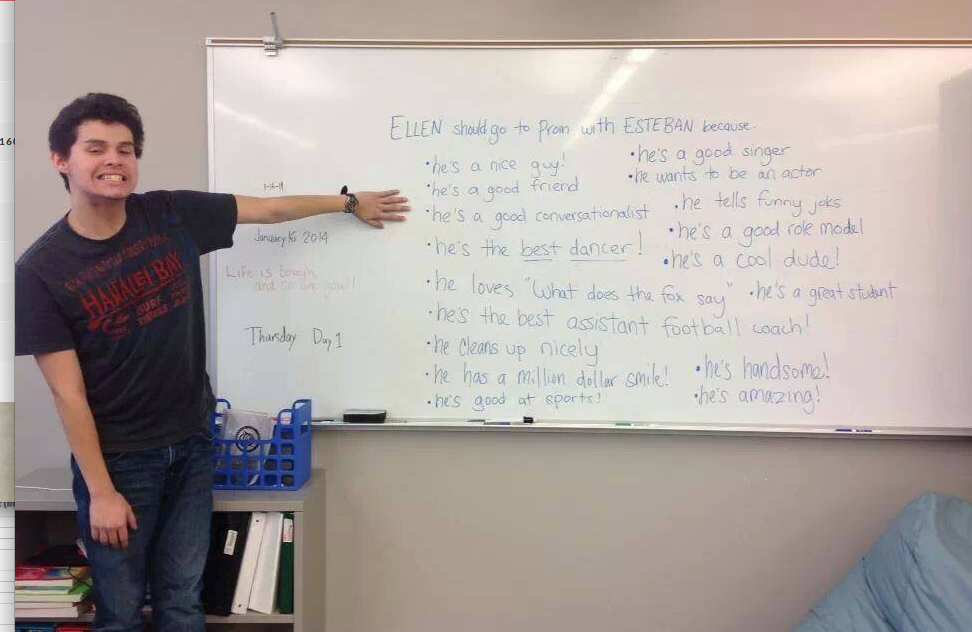 ELLEN should go to Prom with ESTEBAN because.
•he's a nice guy!
•he's a good friend
•he's a good conversationalist
•he's the best dancer!
•he loves "What does the fox say"
•he's the best assistant football coach!
•he cleans up nicely
•he has a million dollar smile!
•he's good at sports!
•he's a good singer
•he wants to be an actor
•he tells funny joks
•he's a good role model
•he's a cool dude!
•he's a great student
•he's handsome!
•he's amazing!
1-16-14
January 16 2014
Life is tough,
and so are you!!
Thursday Day 1
HANALEI BAY
SURF
160